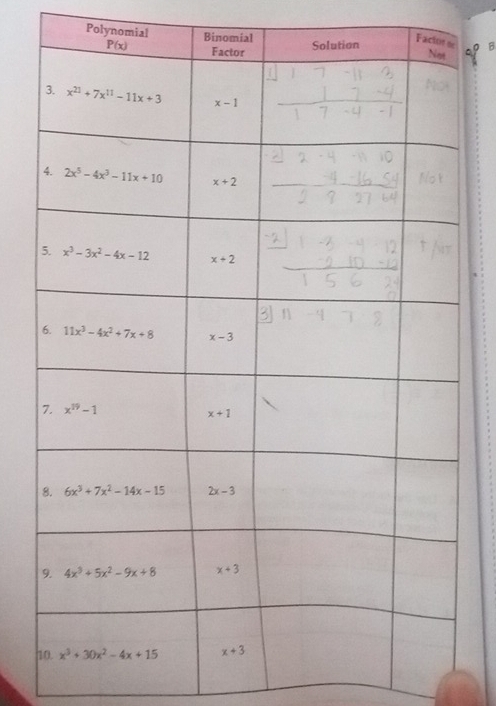 Polynomial P(x) Binomial Factor Solution Factor or Not
3. x²¹ + 7x¹¹ – 11x + 3 x – 1 1 1 7 -11 3 Not
1 7 -4
1 7 -4 -1
4. 2x⁵ – 4x³ – 11x + 10 x + 2 -2 2 -4 -11 10 Not
-4 -16 54
2 8 27 64
5. x³ – 3x² – 4x – 12 x + 2 -2 1 -3 -4 12
-2 10 -12
1 5 6 24
6. 11x³ – 4x² + 7x + 8 x – 3 3 11 -4 7 8
7. x¹⁹ – 1 x + 1
8. 6x³ + 7x² – 14x – 15 2x – 3
9. 4x³ + 5x² – 9x + 8 x + 3
10. x³ + 30x² – 4x + 15 x + 3
B